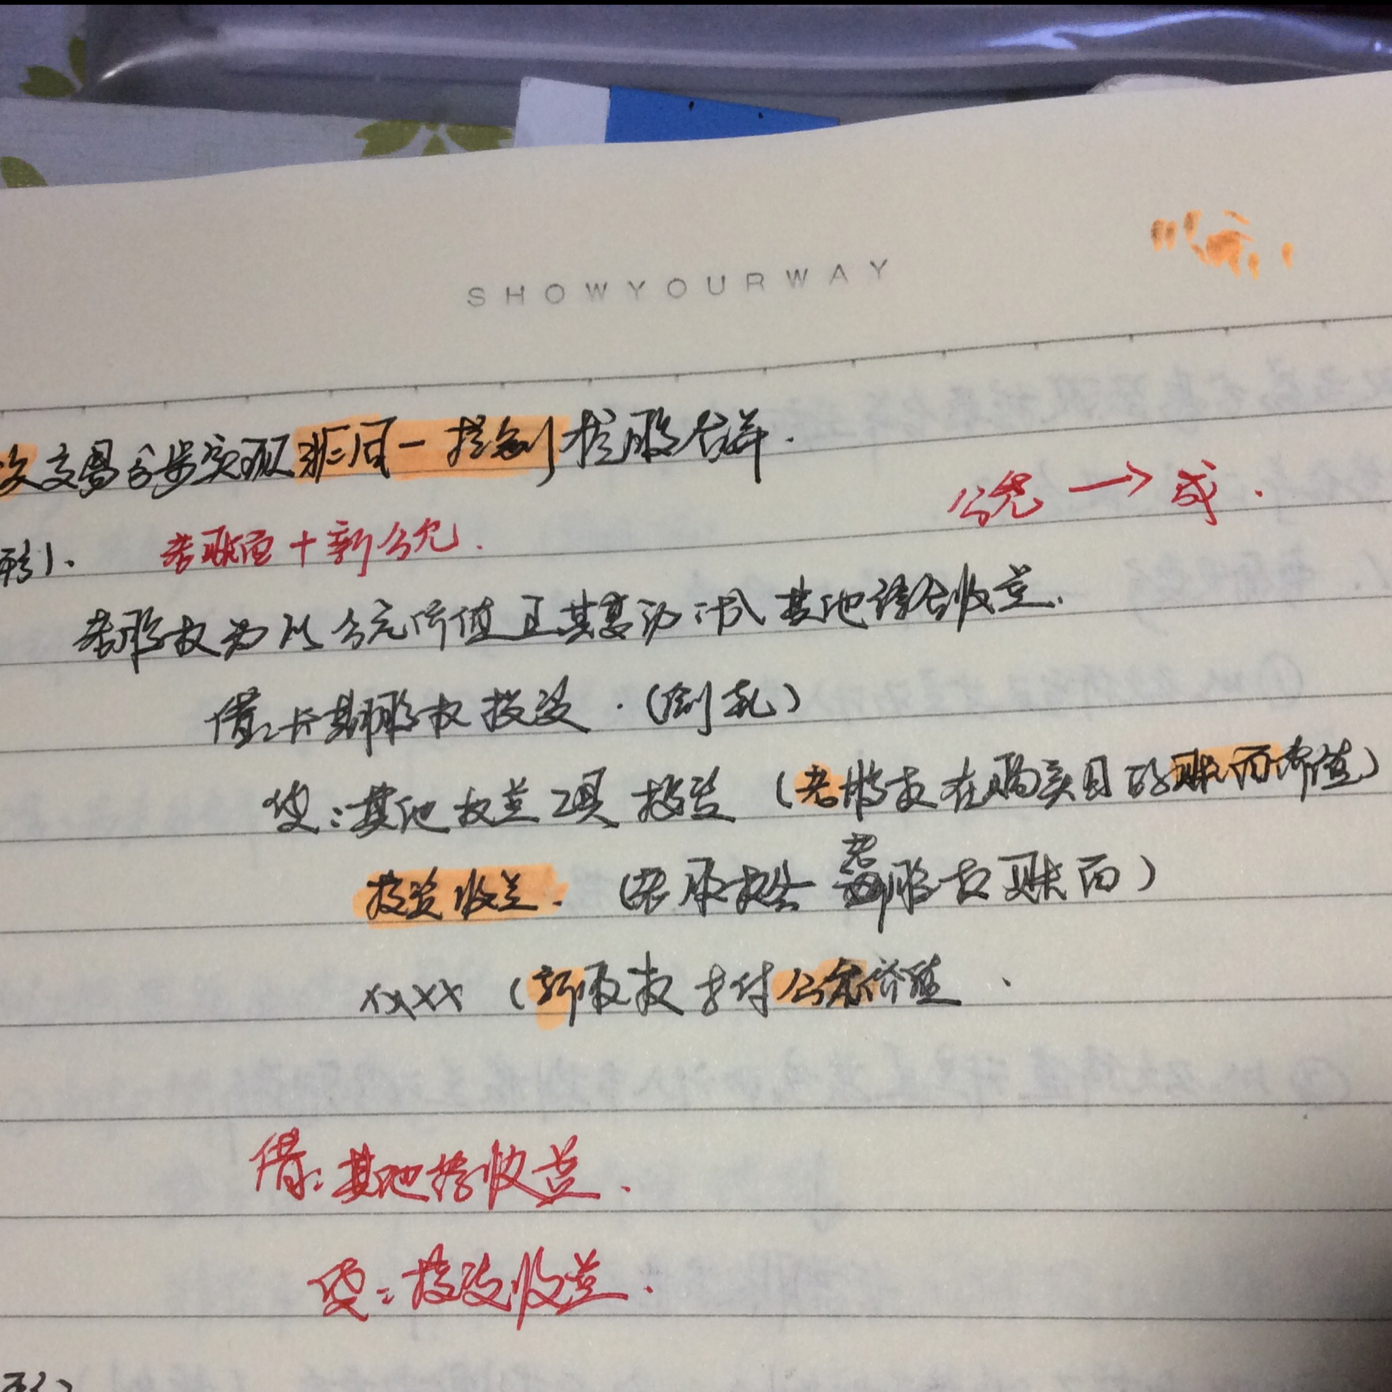 SHOWYOURWAY
次交易分步实现非同一控制控股合并.
公允 → 成.
形1. 老账面+新公允.
老股权为以公允价值且其变动计入其他综合收益.
借:长期股权投资.(倒轧)
贷:其他权益工具投资(老股权在购买日的账面价值)
投资收益.(老股权公 老股权账面)
xxxx(新股权支付公允价值.
借:其他综收益.
贷:投资收益.